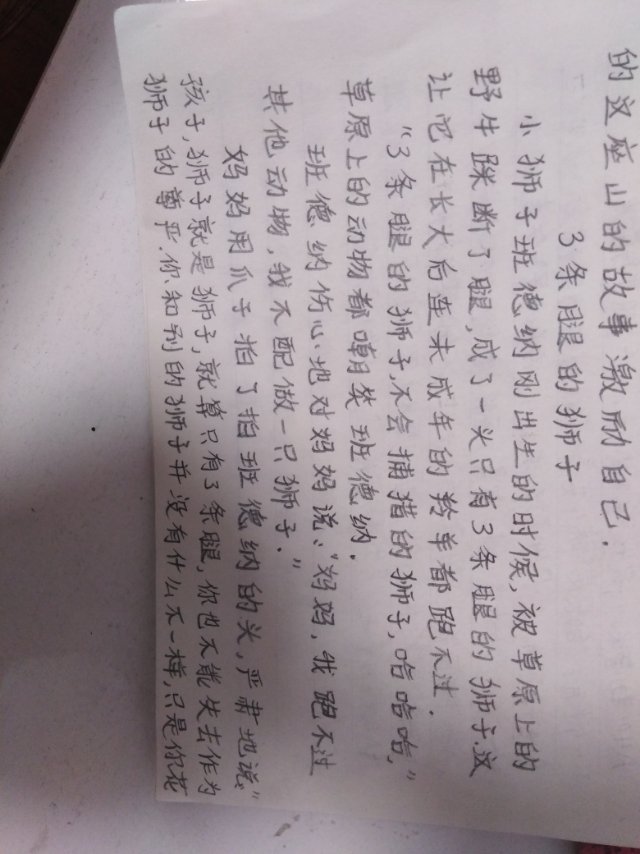 的这座山的故事激励自己.
3条腿的狮子
小狮子班德纳刚出生的时候,被草原上的
野牛踩断了腿,成了一头只有3条腿的狮子这
让它在长大后连未成年的羚羊都跑不过.
“3条腿的狮子,不会捕猎的狮子,哈哈哈,”
草原上的动物都嘲笑班德纳.
班德纳伤心地对妈妈说:“妈妈,我跑不过
其他动物,我不配做一只狮子.”
妈妈用爪子拍了拍班德纳的头,严肃地说“
孩子,狮子就是狮子,就算只有3条腿,你也不能失去作为
狮子的尊严.你和别的狮子并没有什么不一样,只是你花